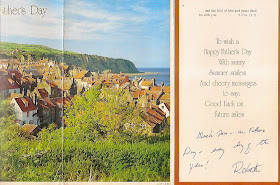 ther's Day
's Day
and the God of love and peace shall
be with you.
To wish a
Happy Father's Day
With sunny
Summer smiles
And cheery messages
to say,
Good Luck on
future miles
Much love - on Fathers
Day - every day of the
year!